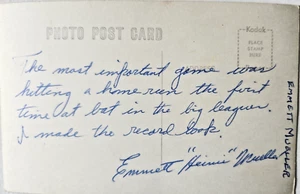 PHOTO POST CARD
Kodak
PLACE
STAMP
HERE
The most important game was
hitting a home run the first
time at bat in the big leagues.
I made the record book.
Emmett "Heinie" Mueller
EMMETT MUELLER